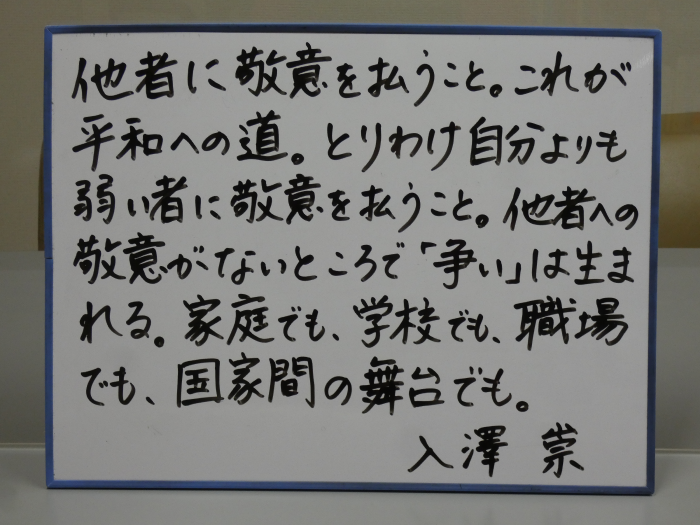 他者に敬意を払うこと。これが
平和への道。とりわけ自分よりも
弱い者に敬意を払うこと。他者への
敬意がないところで「争い」は生ま
れる。家庭でも、学校でも、職場
でも、国家間の舞台でも。
入澤 崇